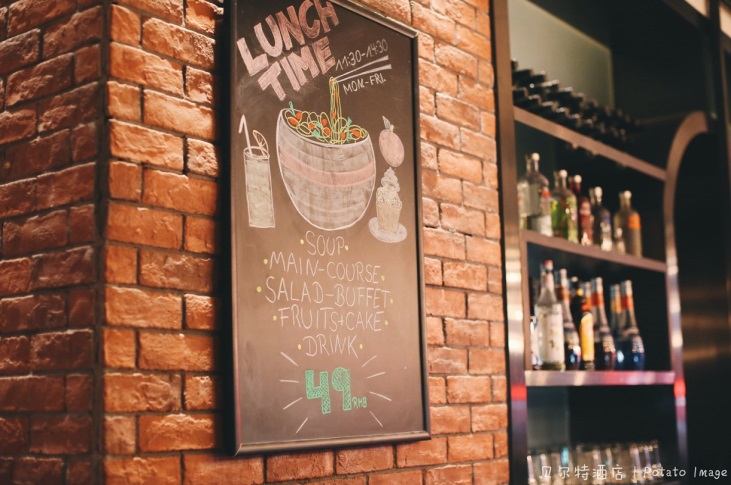 LUNCH
TIME
11:30-14:30
MON-FRI
SOUP
MAIN-COURSE
SALAD-BUFFET
FRUITS+CAKE
DRINK
49 RMB
贝尔特酒店 | Potato Image